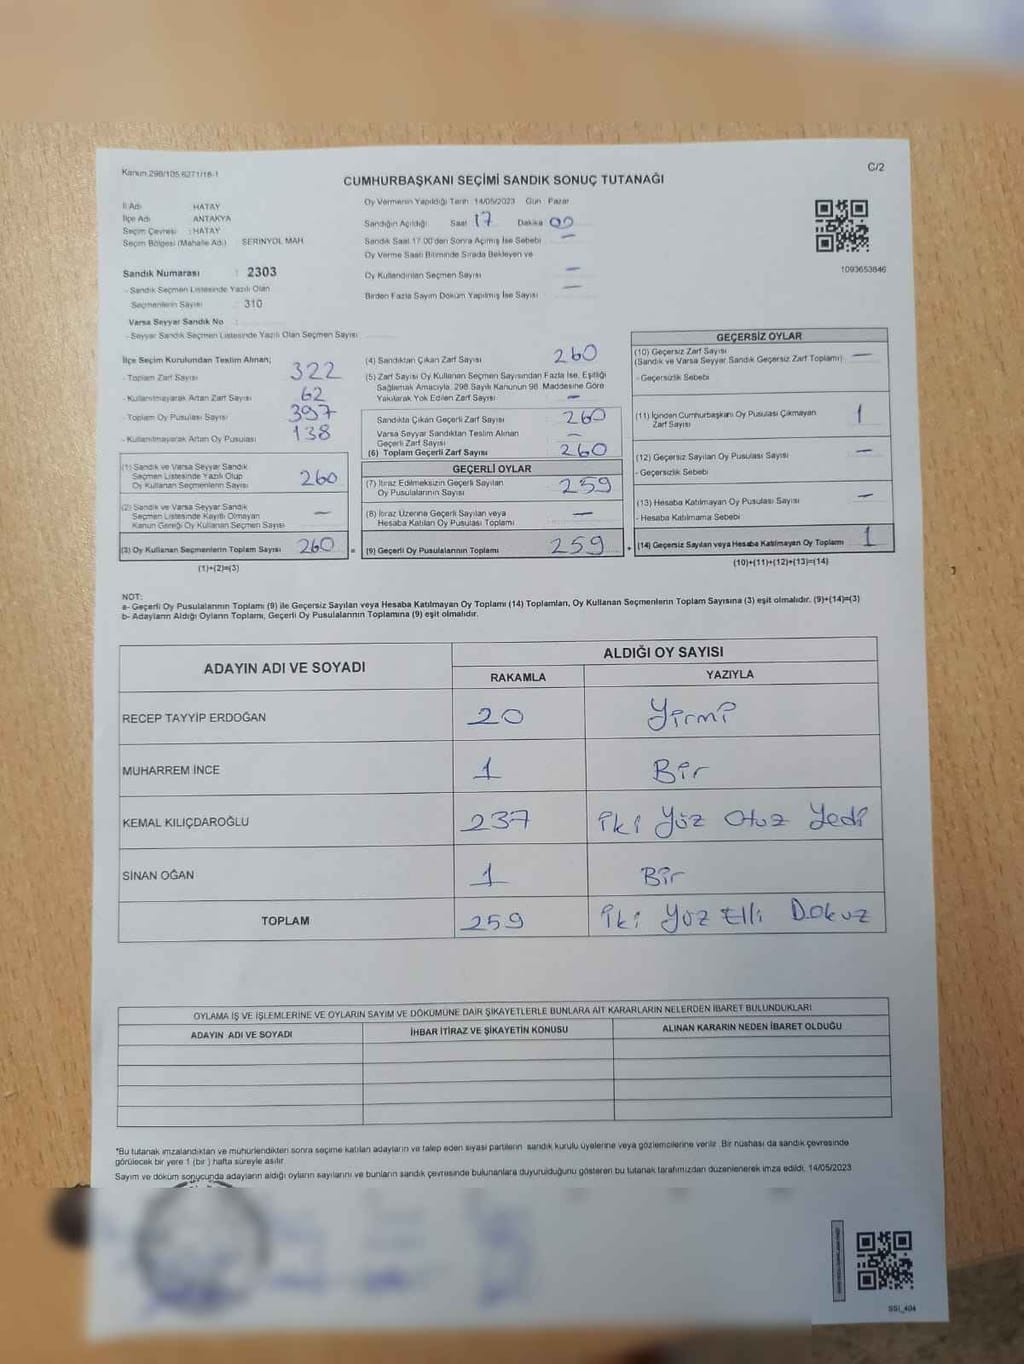 Kanun 298/105.6271/16-1
C/2
CUMHURBAŞKANI SEÇİMİ SANDIK SONUÇ TUTANAĞI
İl Adı : HATAY
İlçe Adı : ANTAKYA
Seçim Çevresi : HATAY
Seçim Bölgesi (Mahalle Adı) SERİNYOL MAH.
Sandık Numarası : 2303
- Sandık Seçmen Listesinde Yazılı Olan
Seçmenlerin Sayısı : 310
Varsa Seyyar Sandık No :
- Seyyar Sandık Seçmen Listesinde Yazılı Olan Seçmen Sayısı
Oy Vermenin Yapıldığı Tarih 14/05/2023 Gün Pazar
Sandığın Açıldığı Saat 17 Dakika 00
Sandık Saat 17.00'den Sonra Açılmış İse Sebebi —
Oy Verme Saati Bitiminde Sırada Bekleyen ve
Oy Kullandırılan Seçmen Sayısı —
Birden Fazla Sayım Döküm Yapılmış İse Sayısı —
1093653846
İlçe Seçim Kurulundan Teslim Alınan;
- Toplam Zarf Sayısı 322
- Kullanılmayarak Artan Zarf Sayısı 62
- Toplam Oy Pusulası Sayısı 397
- Kullanılmayarak Artan Oy Pusulası 138
(1) Sandık ve Varsa Seyyar Sandık
Seçmen Listesinde Yazılı Olup
Oy Kullanan Seçmenlerin Sayısı 260
(2) Sandık ve Varsa Seyyar Sandık
Seçmen Listesinde Kayıtlı Olmayan
Kanun Gereği Oy Kullanan Seçmen Sayısı —
(3) Oy Kullanan Seçmenlerin Toplam Sayısı 260 =
(1)+(2)=(3)
(4) Sandıktan Çıkan Zarf Sayısı 260
(5) Zarf Sayısı Oy Kullanan Seçmen Sayısından Fazla İse, Eşitliği
Sağlamak Amacıyla, 298 Sayılı Kanunun 98. Maddesine Göre
Yakılarak Yok Edilen Zarf Sayısı —
Sandıkta Çıkan Geçerli Zarf Sayısı 260
Varsa Seyyar Sandıktan Teslim Alınan
Geçerli Zarf Sayısı —
(6) Toplam Geçerli Zarf Sayısı 260
GEÇERLİ OYLAR
(7) İtiraz Edilmeksizin Geçerli Sayılan
Oy Pusulalarının Sayısı 259
(8) İtiraz Üzerine Geçerli Sayılan veya
Hesaba Katılan Oy Pusulası Toplamı —
(9) Geçerli Oy Pusulalarının Toplamı 259 +
GEÇERSİZ OYLAR
(10) Geçersiz Zarf Sayısı
(Sandık ve Varsa Seyyar Sandık Geçersiz Zarf Toplamı) —
- Geçersizlik Sebebi
(11) İçinden Cumhurbaşkanı Oy Pusulası Çıkmayan
Zarf Sayısı 1
(12) Geçersiz Sayılan Oy Pusulası Sayısı —
- Geçersizlik Sebebi
(13) Hesaba Katılmayan Oy Pusulası Sayısı —
- Hesaba Katılmama Sebebi
(14) Geçersiz Sayılan veya Hesaba Katılmayan Oy Toplamı 1
(10)+(11)+(12)+(13)=(14)
NOT:
a- Geçerli Oy Pusulalarının Toplamı (9) ile Geçersiz Sayılan veya Hesaba Katılmayan Oy Toplamı (14) Toplamları, Oy Kullanan Seçmenlerin Toplam Sayısına (3) eşit olmalıdır. (9)+(14)=(3)
b- Adayların Aldığı Oyların Toplamı, Geçerli Oy Pusulalarının Toplamına (9) eşit olmalıdır.
ADAYIN ADI VE SOYADI
ALDIĞI OY SAYISI
RAKAMLA YAZIYLA
RECEP TAYYİP ERDOĞAN 20 Yirmi
MUHARREM İNCE 1 Bir
KEMAL KILIÇDAROĞLU 237 iki Yüz Otuz Yedi
SİNAN OĞAN 1 Bir
TOPLAM 259 iki Yüz Elli Dokuz
OYLAMA İŞ VE İŞLEMLERİNE VE OYLARIN SAYIM VE DÖKÜMÜNE DAİR ŞİKAYETLERLE BUNLARA AİT KARARLARIN NELERDEN İBARET BULUNDUKLARI
ADAYIN ADI VE SOYADI İHBAR İTİRAZ VE ŞİKAYETİN KONUSU ALINAN KARARIN NEDEN İBARET OLDUĞU
*Bu tutanak imzalandıktan ve mühürlendikten sonra seçime katılan adayların ve talep eden siyasi partilerin sandık kurulu üyelerine veya gözlemcilerine verilir. Bir nüshası da sandık çevresinde
görülecek bir yere 1 (bir) hafta süreyle asılır.
Sayım ve döküm sonucunda adayların aldığı oyların sayılarını ve bunların sandık çevresinde bulunanlara duyurulduğunu gösteren bu tutanak tarafımızdan düzenlenerek imza edildi. 14/05/2023
SSI_404